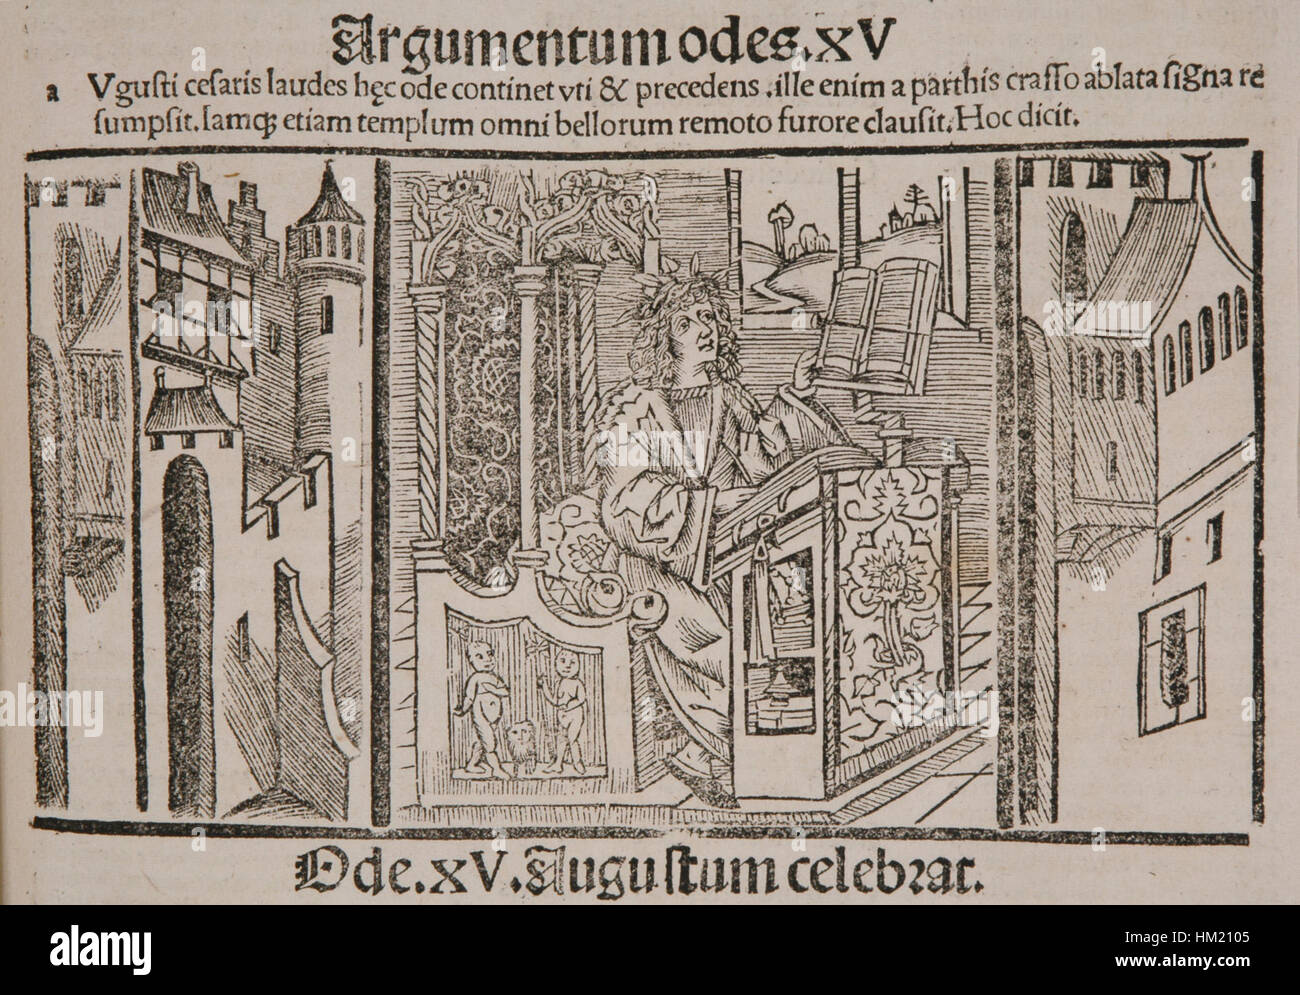 Argumentum odes.XV
a Vgusti cesaris laudes hęc ode continet vti & precedens .ille enim a parthis crasso ablata signa re
sumpsit.Iamqꝫ etiam templum omni bellorum remoto furore clausit.Hoc dicit.
Ode.XV.Augustum celebrat.
alamy
Image ID: HM2105
www.alamy.com